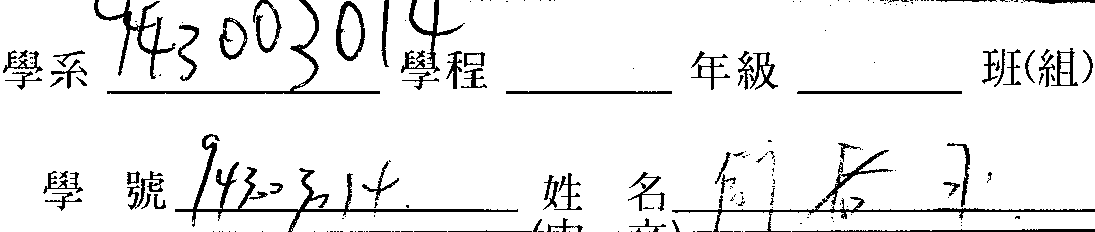 學系 943003014 學程 年級 班(組)
學 號 943003014 姓 名